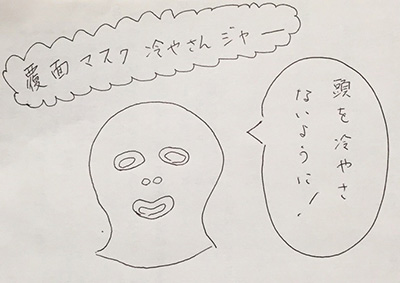 覆面マスク冷やさんジャー
頭を冷やさ
ないように!